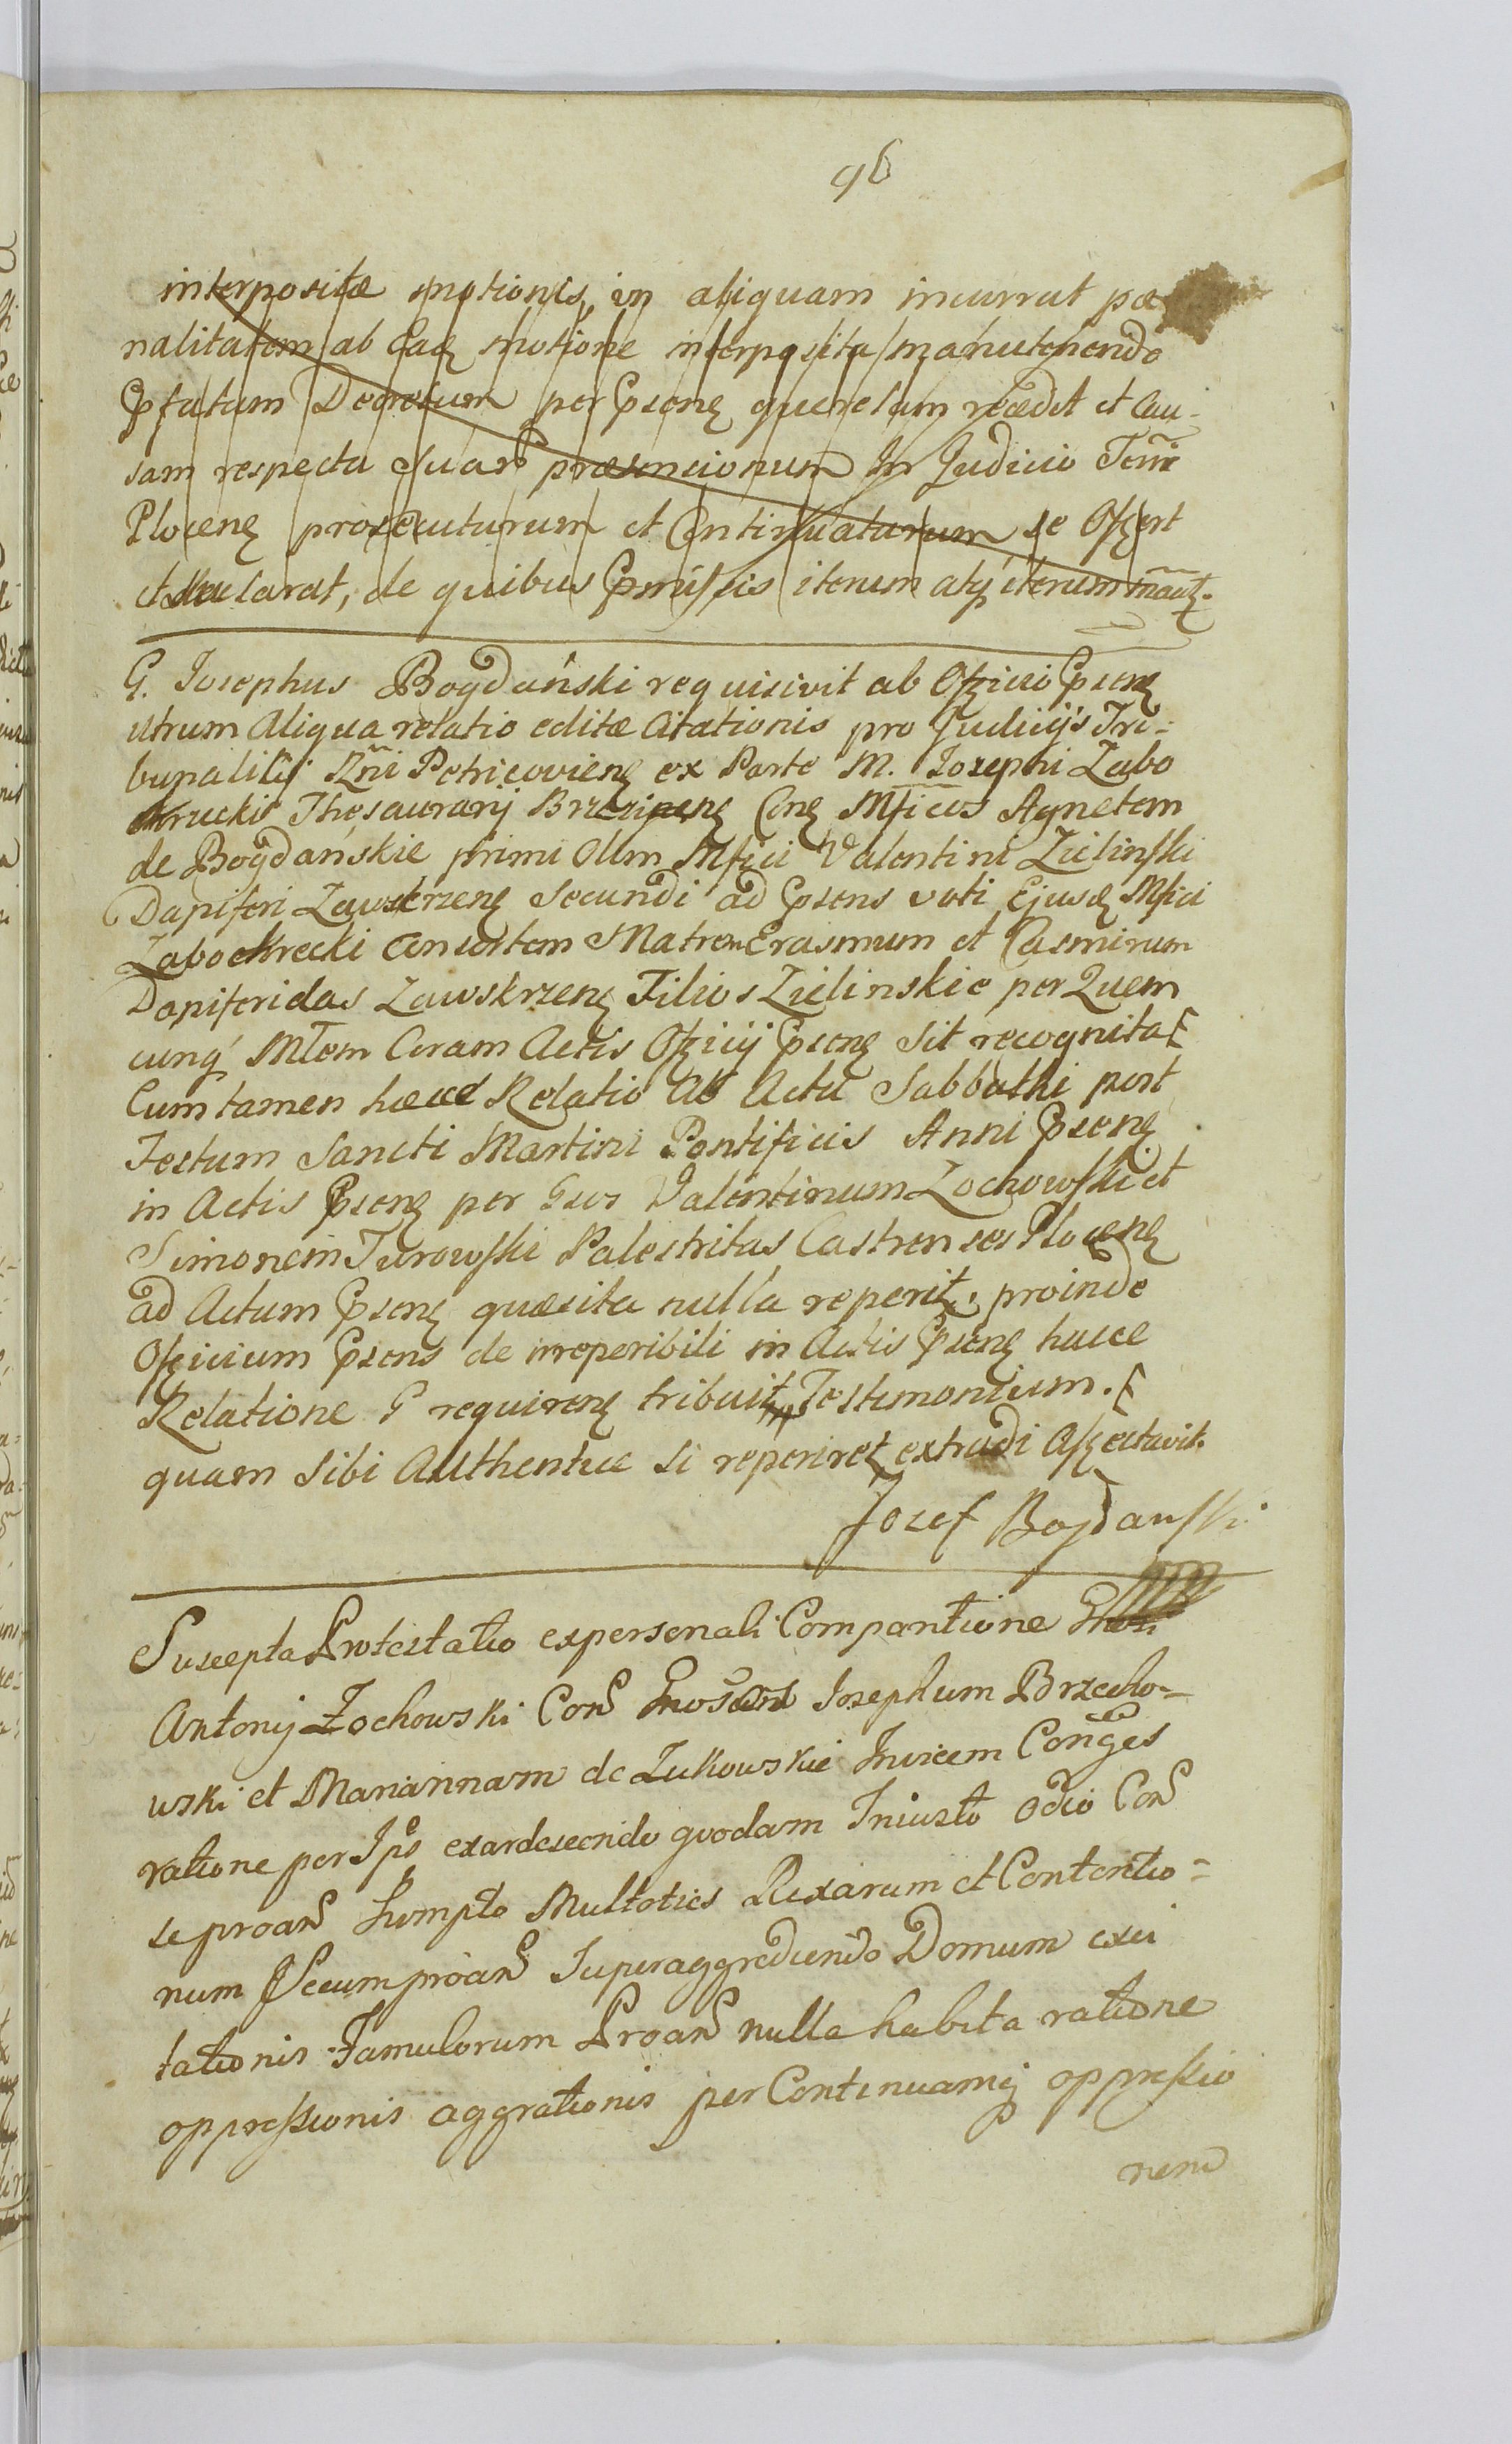 96
interpositæ motionis, in aliquam incurrat pœ
nalitatem ab Eadꝫ motione interposita manutenendo
Pfatum Decretum per Psenꝫ querelam recedit et Cau-
sam respectu suarꝰ prætensionum In Judicio Terri
Plocenꝫ prosecuturum et Continuaturum se Offert
et declarat, de quibus Pmissis iterum atqꝫ iterum
G. Josephus Bogdański requisivit ab Officio Psenꝫ
utrum Aliqua relatio editæ Citationis pro Judicijs Tri-
bunalitijs Rñi Petricoviensꝫ ex Parte M. Josephi Zabo
kruckis Thesaurarij Brzezinenꝫ Conꝫ Mficos Agnetem
de Bogdańskie primi Olim Mfici Valentini Zielinski
Dapiferi Zawskrzenꝫ Secundi ad Psens voti Ejusdꝫ Mfici
Zabokrecki Consortem Matrem Erasmum et Casmirum
Dapiferidas Zawskrzenꝫ Filios Zielinskie per Quem
cunqꝫ Mtem Coram Actis Officij Psenꝫ sit recognita
Cum tamen hæcce Relatio Ab Actu Sabbathi post
Festum Sancti Martini Pontificis Anni Psenꝫ
in Actis Psenꝫ per Gsos Valentinum Zochowski et
Simonem Turowski Palestritas Castrenses Plocenꝫ
ad Actum Psenꝫ quæsita nulla reperitꝫ, proinde
Officium Psens de irreperibili in Actis Psenꝫ hacce
Relatione G requirenꝫ tribuit Testimonium.
quam sibi Authentice si reperiretꝫ extradi Affectavit.
Jozef Bogdanski
Suscepta Protestatio ex personali Comparitione
Antonij Zochowski Conꝰ Josephum Brzecho-
wski et Mariannam de Zukowskie Invicem Conges
ratione per Ipos exardescendo quodam Iniusto Odio Conꝰ
se proanꝰ sumpto Multoties Rixarum et Contentio-
num Secum proanꝰ Superaggrediendo Domum exci
tationis Famulorum Proanꝰ nulla habita ratione
oppressionis aggrationis per Continuamqꝫ oppressio
nem